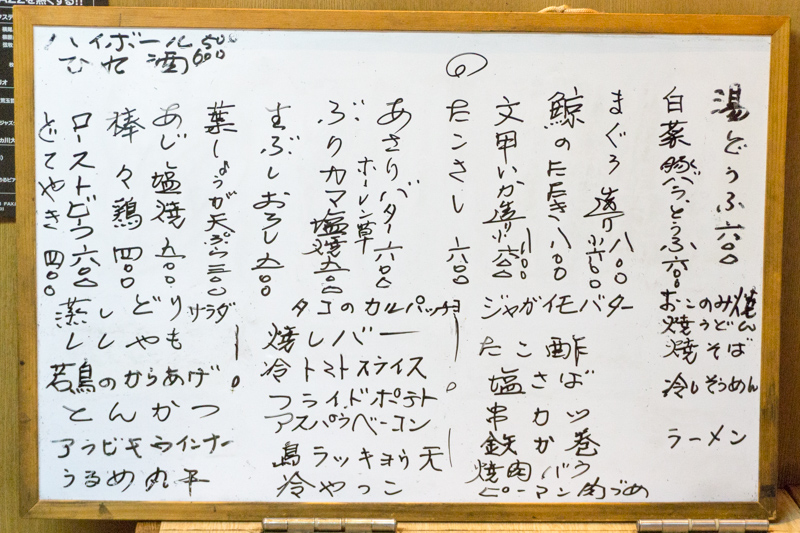 ハイボール 500
ひれ酒 600
の
湯どうふ 六〇〇
白菜豚バラとうふ 六〇〇
まぐろ 造り 八〇〇 小六〇〇
鯨のたたき 八〇〇
文甲いか造り 六〇〇
たんさし 六〇〇
あさりバター 六〇〇
ホーレン草
ぶりカマ塩焼 五〇〇
生ぶしおろし 五〇〇
葉しょうが天ぷら 三〇〇
あじ塩焼 五〇〇
棒々鶏 四〇〇
ローストビーフ 六〇〇
どてやき 四〇〇
おこのみ焼
焼うどん
焼そば
冷しそうめん
ラーメン
ジャガイモバター
たこ酢
塩さば
串カツ
鉄か巻
焼肉バラ
ピーマン肉づめ
タコのカルパッチョ
焼レバー
冷トマトスライス
フライドポテト
アスパラベーコン
島ラッキョウ天
冷やっこ
蒸しどりサラダ
ししゃも
若鳥のからあげ
とんかつ
アラビキウインナー
うるめ丸干